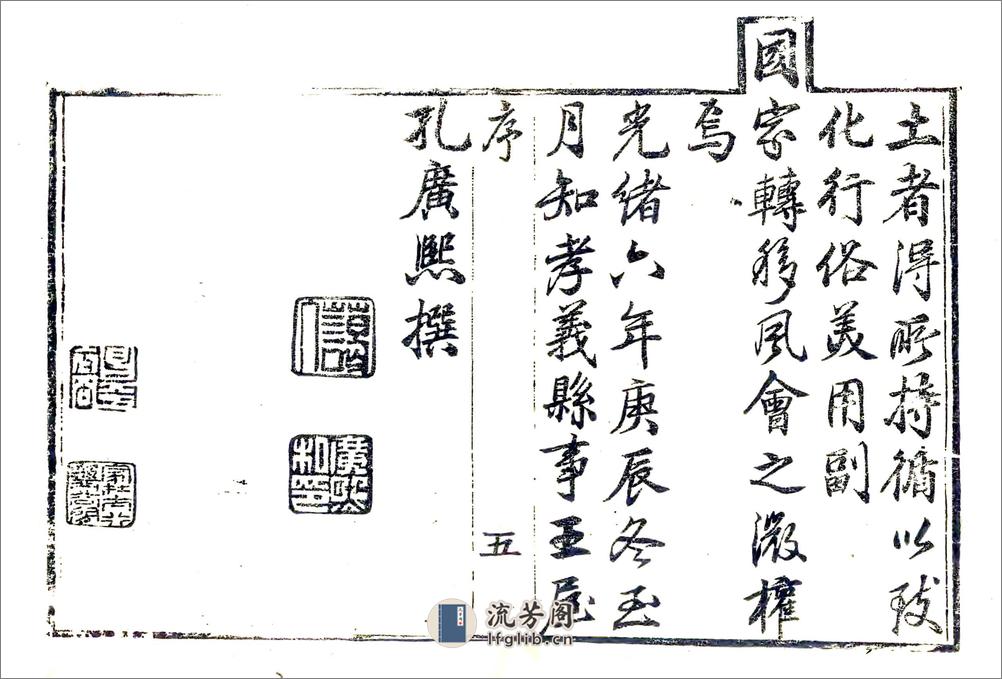 土者得所持循以致
化行俗美用副
國家轉移風會之微權
焉
光緒六年庚辰冬至
月知孝義縣事王屋
序
五
孔廣熙撰
廣熙
流芳阁
lfglib.cn